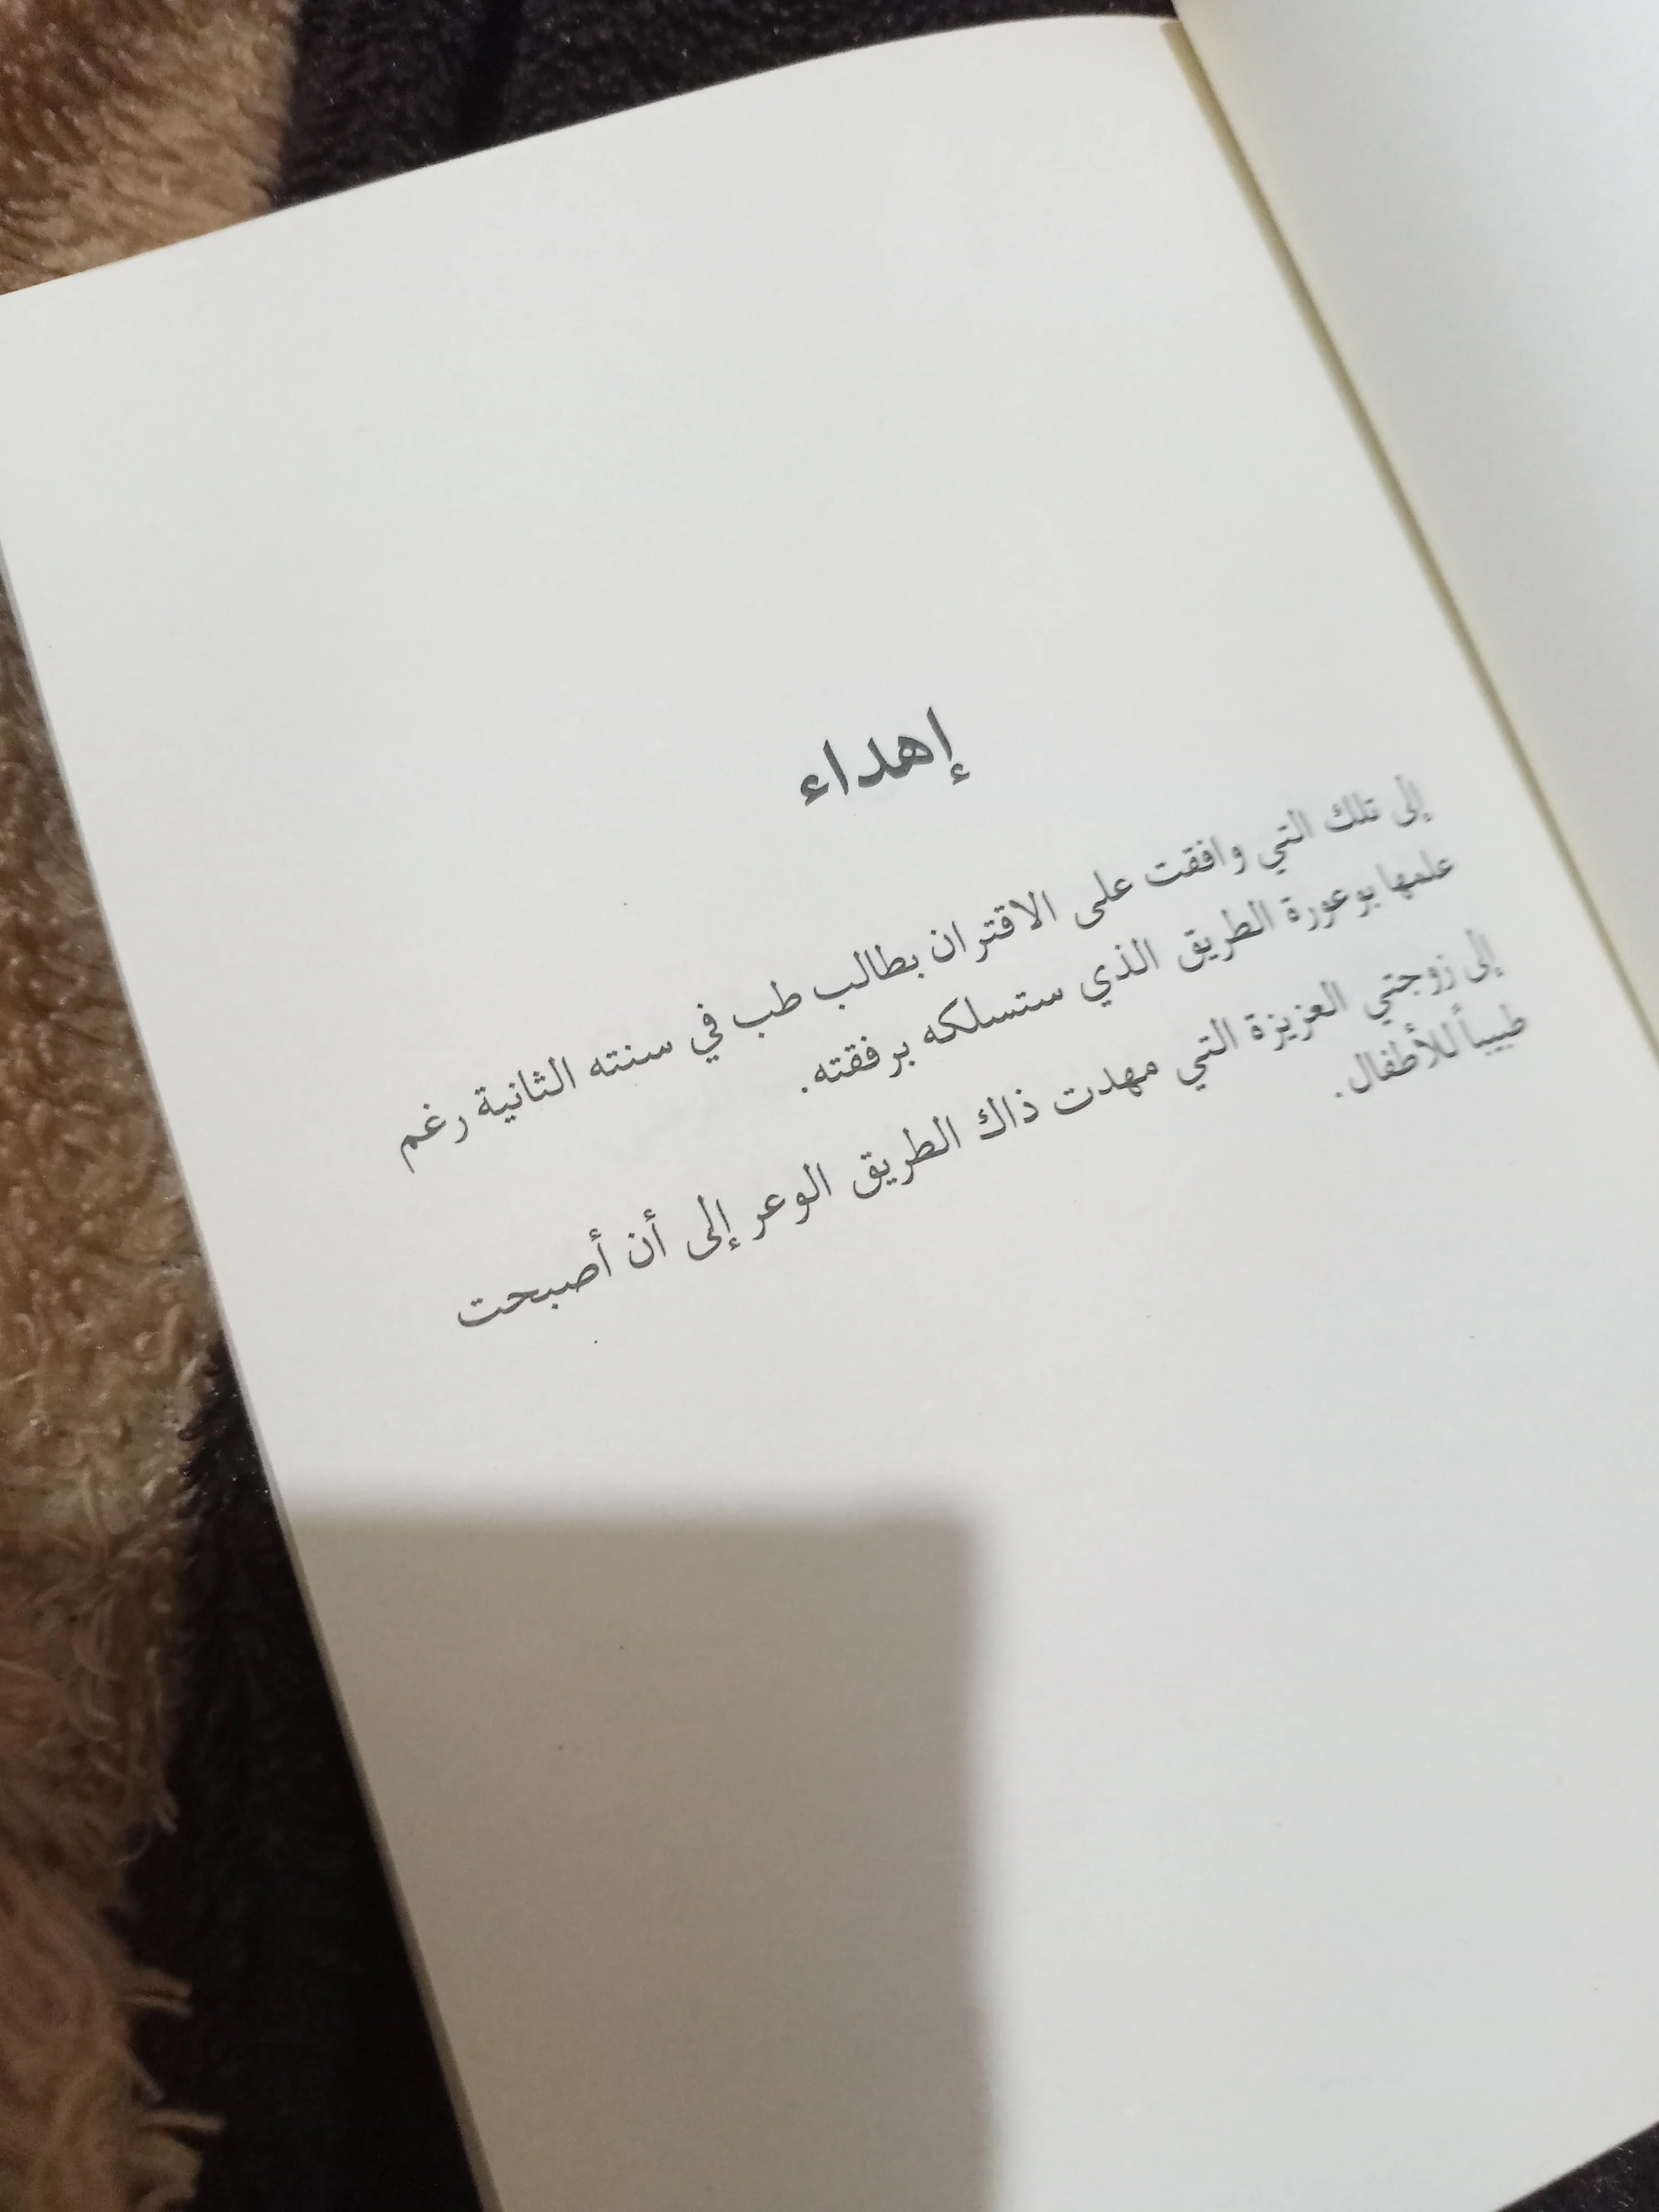 إهداء
إلى تلك التي وافقت على الاقتران بطالب طب في سنته الثانية رغم
علمها بوعورة الطريق الذي ستسلكه برفقته.
إلى زوجتي العزيزة التي مهدت ذاك الطريق الوعر إلى أن أصبحت
طبيباً للأطفال.